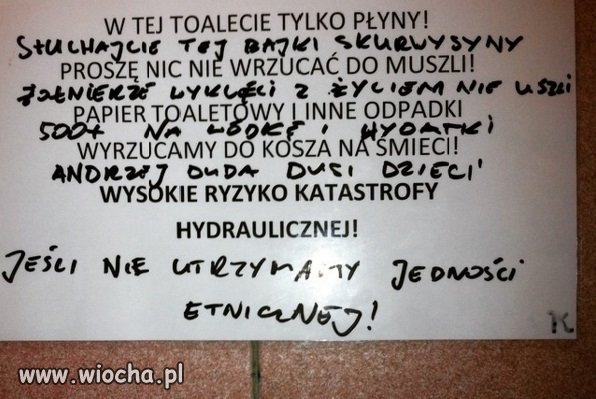 W TEJ TOALECIE TYLKO PŁYNY!
SŁUCHAJCIE TEJ BAJKI SKURWYSYNY
PROSZĘ NIC NIE WRZUCAĆ DO MUSZLI!
ŻOŁNIERZE WYKLĘCI Z ŻYCIEM NIE USZLI
PAPIER TOALETOWY I INNE ODPADKI
500+ NA WÓDKĘ I WYDATKI
WYRZUCAMY DO KOSZA NA ŚMIECI!
ANDRZEJ DUDA DUSI DZIECI
WYSOKIE RYZYKO KATASTROFY
HYDRAULICZNEJ!
JEŚLI NIE UTRZYMAMY JEDNOŚCI
ETNICZNEJ!
K
www.wiocha.pl